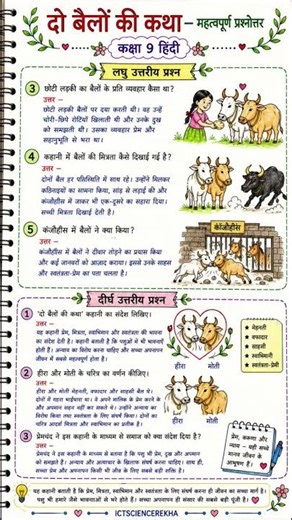 दो बैलों की कथा – महत्वपूर्ण प्रश्नोत्तर
कक्षा 9 हिंदी
लघु उत्तरीय प्रश्न
3 छोटी लड़की का बैलों के प्रति व्यवहार कैसा था?
उत्तर –
छोटी लड़की बैलों पर दया करती थी। वह उन्हें
चोरी-छिपे रोटियाँ खिलाती थी और उनके दुख
को समझती थी। उसका व्यवहार प्रेम और
सहानुभूति से भरा था।
4 कहानी में बैलों की मित्रता कैसे दिखाई गई है?
उत्तर –
दोनों बैल हर परिस्थिति में साथ रहे। उन्होंने मिलकर
कठिनाइयों का सामना किया, सांड़ से लड़ाई की और
कांजीहौस में जाकर भी एक-दूसरे का सहारा दिया।
सच्ची मित्रता दिखाई देती है।
5 कांजीहौस में बैलों ने क्या किया?
उत्तर –
कांजीहौस में बैलों ने दीवार तोड़ने का प्रयास किया
और कई जानवरों को आज़ाद कराया। इससे उनके साहस
और स्वतंत्रता-प्रेम का पता चलता है।
कांजीहौस
दीर्घ उत्तरीय प्रश्न
1 'दो बैलों की कथा' कहानी का संदेश लिखिए।
उत्तर –
यह कहानी प्रेम, मित्रता, स्वाभिमान और स्वतंत्रता की भावना
का संदेश देती है। कहानी बताती है कि पशुओं में भी भावनाएँ
होती हैं। अन्याय का विरोध करना चाहिए और सच्चा अपनापन
जीवन में सबसे महत्वपूर्ण होता है।
हीरा
मोती
★ मेहनती
★ वफादार
★ साहसी
★ स्वाभिमानी
★ स्वतंत्रता-प्रेमी
2 हीरा और मोती के चरित्र का वर्णन कीजिए।
उत्तर –
हीरा और मोती मेहनती, वफादार और साहसी बैल थे।
दोनों में गहरा भाईचारा था। वे अपने मालिक के प्रेम करते थे
और अपमान सहन नहीं कर सकते थे। उन्होंने अन्याय का
विरोध किया तथा स्वतंत्रता के लिए संघर्ष किया। दोनों का
चरित्र आदर्श मित्रता और स्वाभिमान का प्रतीक है।
हीरा
मोती
3 प्रेमचंद ने इस कहानी के माध्यम से समाज को क्या संदेश दिया है?
उत्तर –
प्रेमचंद ने इस कहानी में बताया है कि पशु भी प्रेम, दुख और अपमान
को समझते हैं। अन्याय और अत्याचार के खिलाफ संघर्ष करना चाहिए। साथ ही,
सच्चा प्रेम और अपनापन किसी भी जीव के लिए सबसे बड़ी शक्ति है।
प्रेम, करुणा और
न्याय – यही सच्चे
मानव जीवन के
आभूषण हैं।
यह कहानी बताती है कि प्रेम, मित्रता, स्वाभिमान और स्वतंत्रता के लिए संघर्ष करना ही जीवन का सच्चा मार्ग है।
पशु भी हमारे जैसे भावनाओं से भरे होते हैं। सच्चा अपनापन ही संसार की सबसे बड़ी पूंजी है।
ICTSCIENCEREKHA